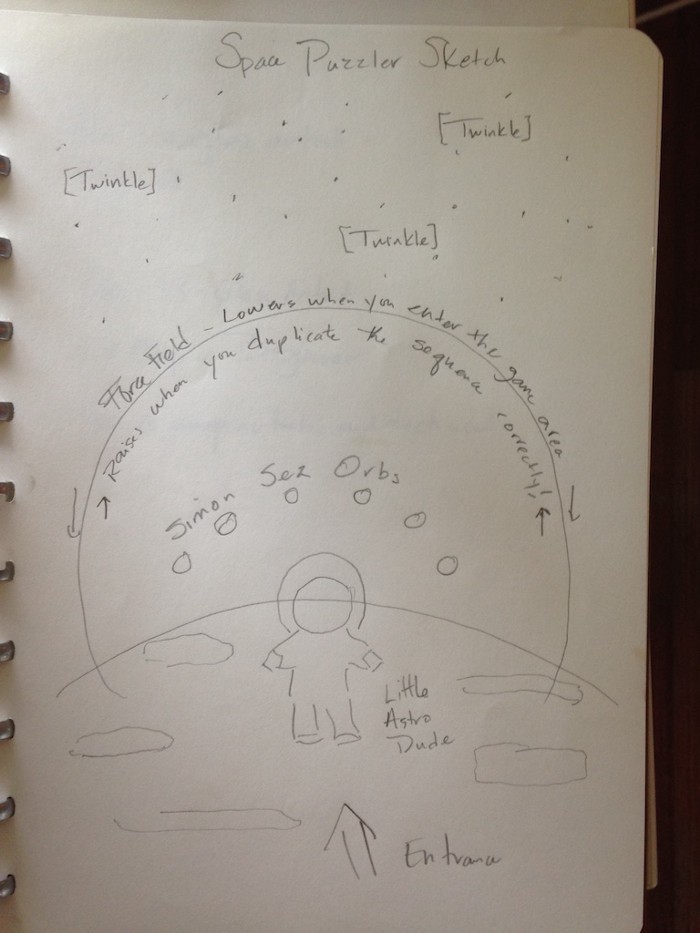 Space Puzzler Sketch
[Twinkle]
[Twinkle]
[Twinkle]
Force Field - Lowers when you enter the game area
Raises when you duplicate the sequence correctly!
Simon Sez Orbs
Little
Astro
Dude
Entrance